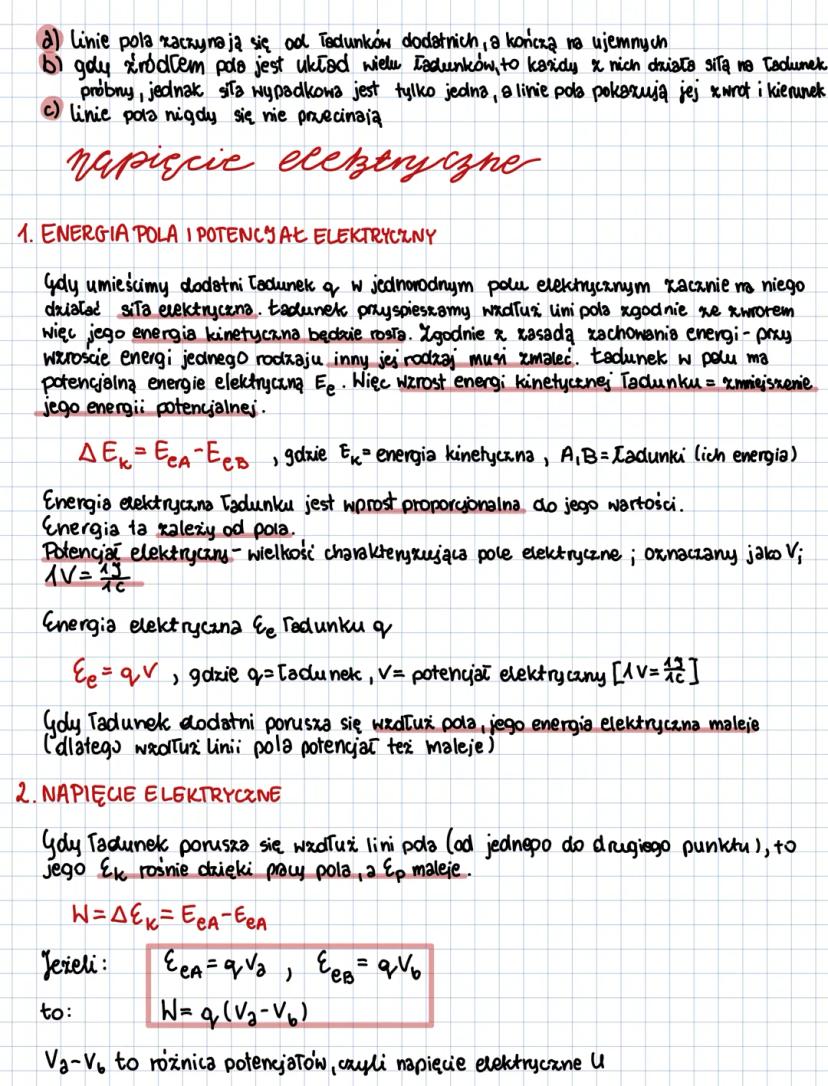 a) linie pola zaczynają się od ładunków dodatnich, a kończą na ujemnych
b) gdy źródłem pola jest układ wielu ładunków, to każdy z nich działa siłą na ładunek
próbny, jednak siła wypadkowa jest tylko jedna, a linie pola pokazują jej zwrot i kierunek
c) linie pola nigdy się nie przecinają
napięcie elektryczne
1. ENERGIA POLA I POTENCJAŁ ELEKTRYCZNY
Gdy umieścimy dodatni ładunek q w jednorodnym polu elektrycznym zacznie na niego
działać siła elektryczna. Ładunek przyspieszamy wzdłuż lini pola zgodnie ze zworem
więc jego energia kinetyczna będzie rosła. Zgodnie z zasadą zachowania energi - przy
wzroście energi jednego rodzaju inny jej rodzaj musi zmaleć. Ładunek w polu ma
potencjalną energie elektryczną Ee. Więc wzrost energi kinetycznej ładunku = zmniejszenie
jego energii potencjalnej.
ΔEk = EeA - EeB , gdzie Ek = energia kinetyczna , A,B = ładunki (ich energia)
Energia elektryczna ładunku jest wprost proporcjonalna do jego wartości.
Energia ta zależy od pola.
Potencjał elektryczny - wielkość charakteryzująca pole elektryczne ; oznaczany jako V;
1V = 1J/1C
Energia elektryczna Ee ładunku q
Ee = qV , gdzie q = ładunek , V = potencjał elektryczny [1V = 1J/1C]
Gdy ładunek dodatni porusza się wzdłuż pola, jego energia elektryczna maleje
(dlatego wzdłuż linii pola potencjał też maleje)
2. NAPIĘCIE ELEKTRYCZNE
Gdy ładunek porusza się wzdłuż lini pola (od jednego do drugiego punktu), to
jego Ek rośnie dzięki pracy pola, a Ep maleje.
W = ΔEk = EeA - EeA
Jeżeli: EeA = qVa , EeB = qVb
to: W = q(Va - Vb)
Va - Vb to różnica potencjałów, czyli napięcie elektryczne U